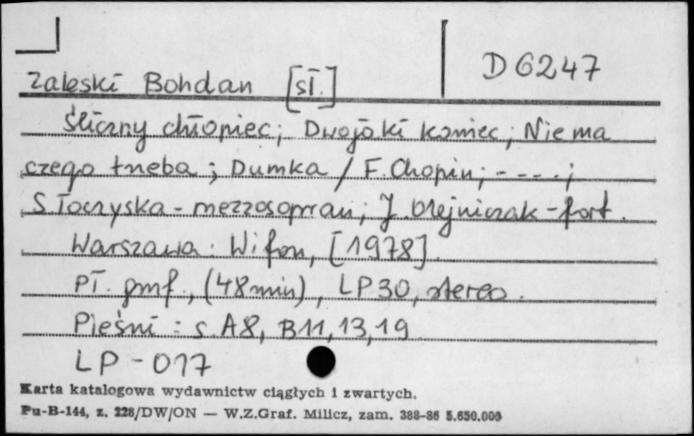 D 6247
Zaleski Bohdan [sł.]
Śliczny chłopiec; Dwojaki koniec; Nie ma
czego trzeba; Dumka / F. Chopin; - - - -;
S. Toczyska - mezzosopran; J. Olejniczak - fort.
Warszawa: Wifon, [1978].
Pł. gmf., (48 min), LP30, stereo.
Pieśni: s. A8, B11, 13, 19
LP - 017
Karta katalogowa wydawnictw ciągłych i zwartych.
Pu-B-144, z. 228/DW/ON — W.Z.Graf. Milicz, zam. 388-86 5.650.000